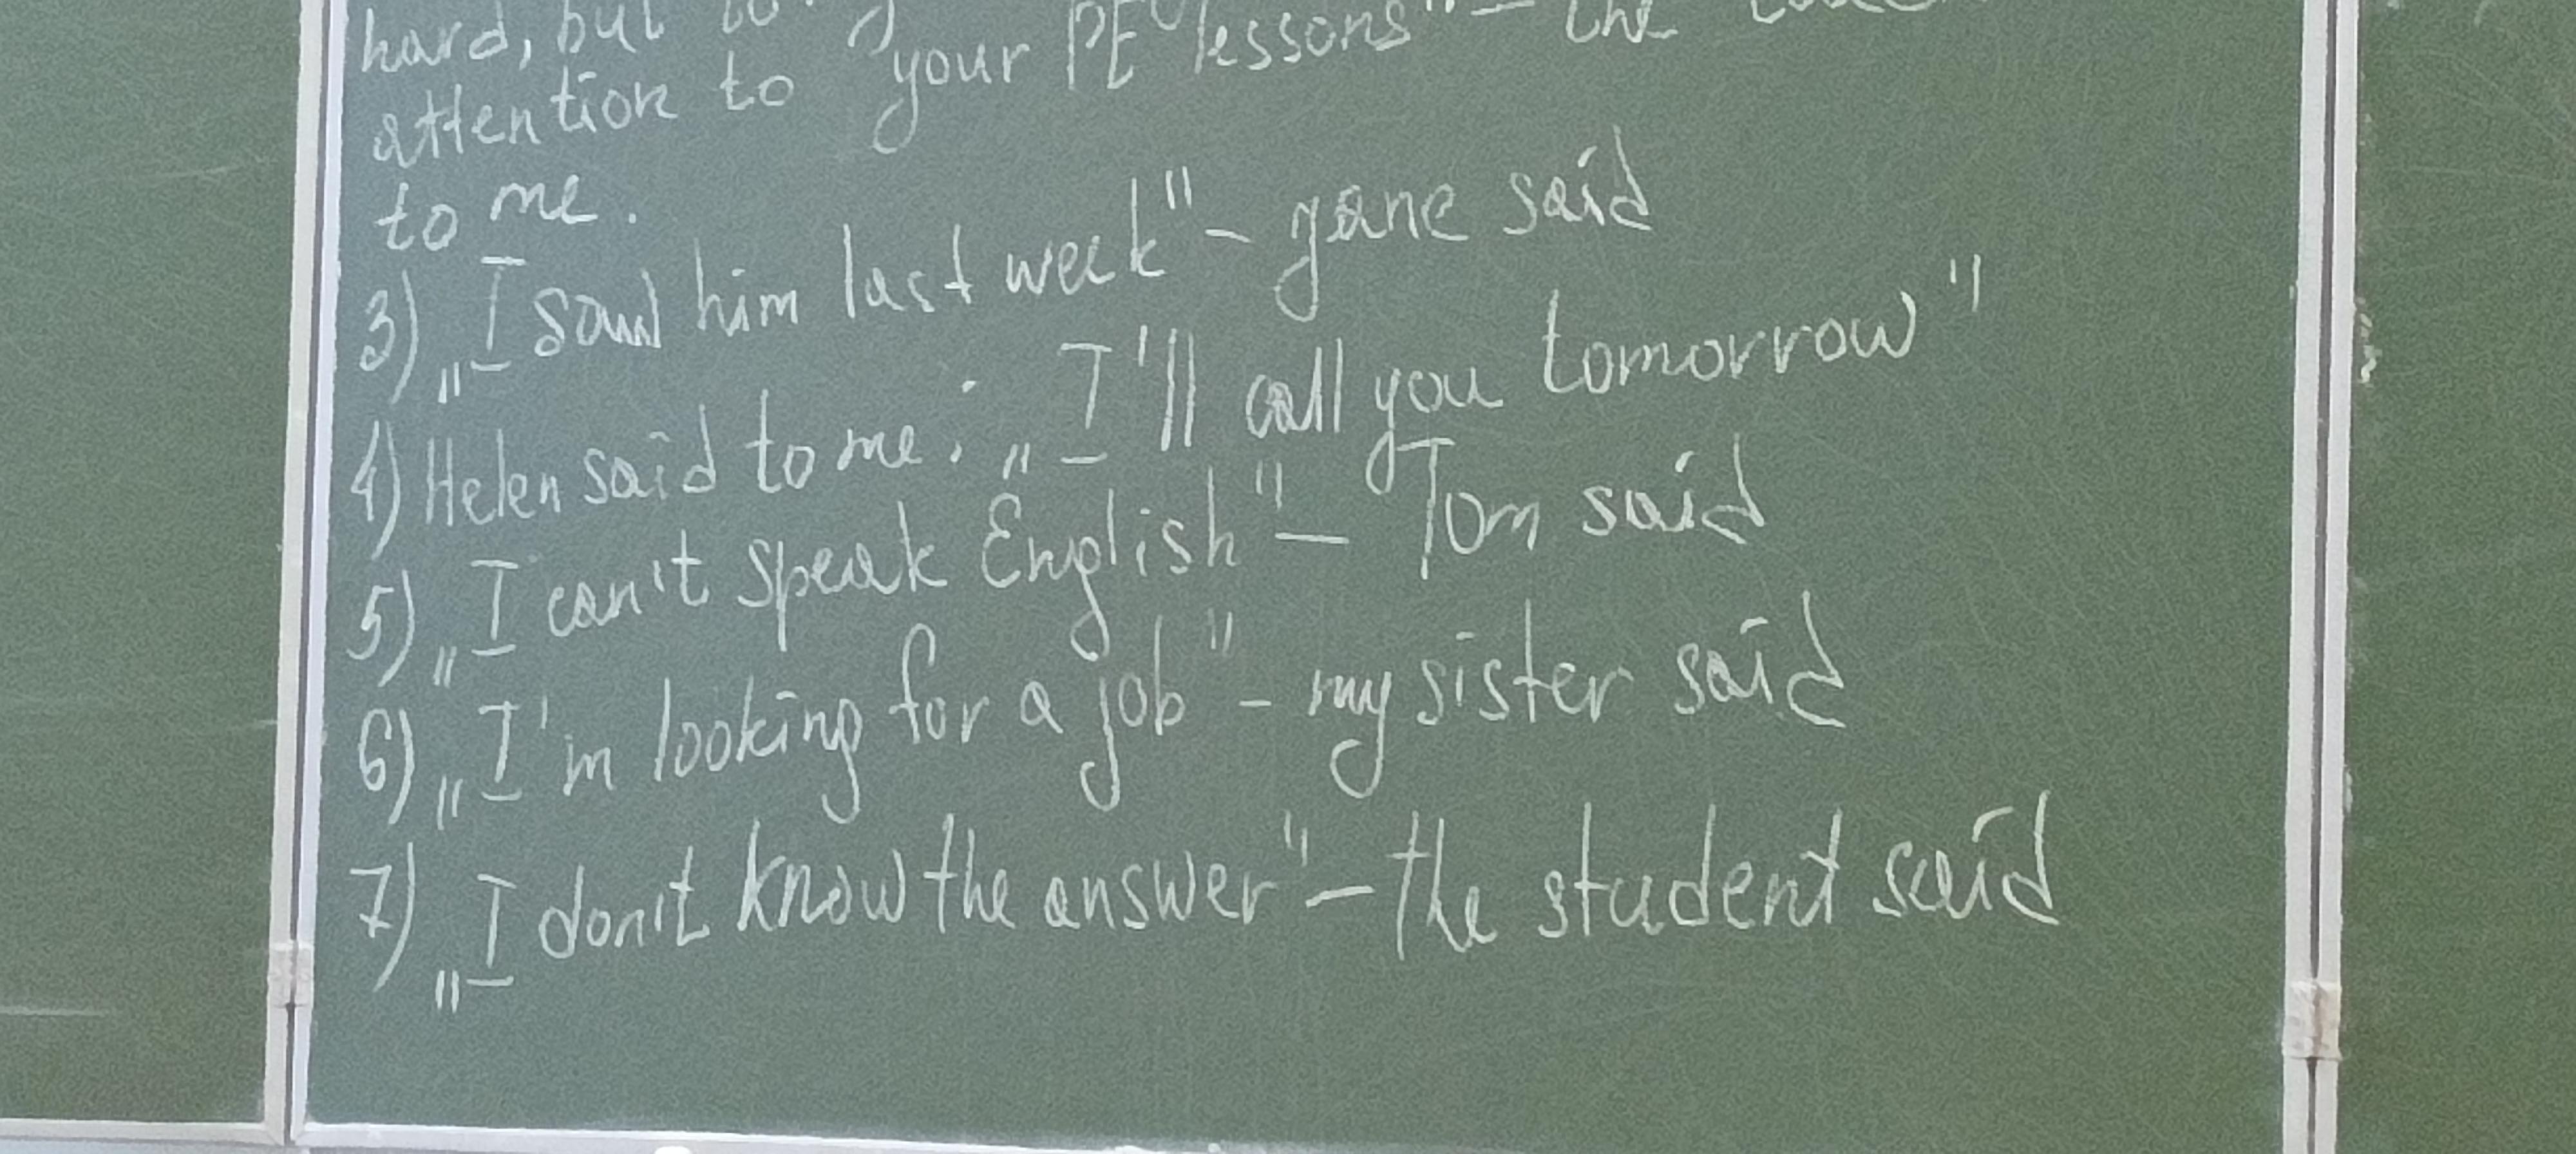 hard, but to your PE lessons" – the
attention to
to me.
3) „I saw him last week" – Jane said
4) Helen said to me: „I'll call you tomorrow"
5) „I can't speak English" – Tom said
6) „I'm looking for a job" – my sister said
7) „I don't know the answer" – the student said